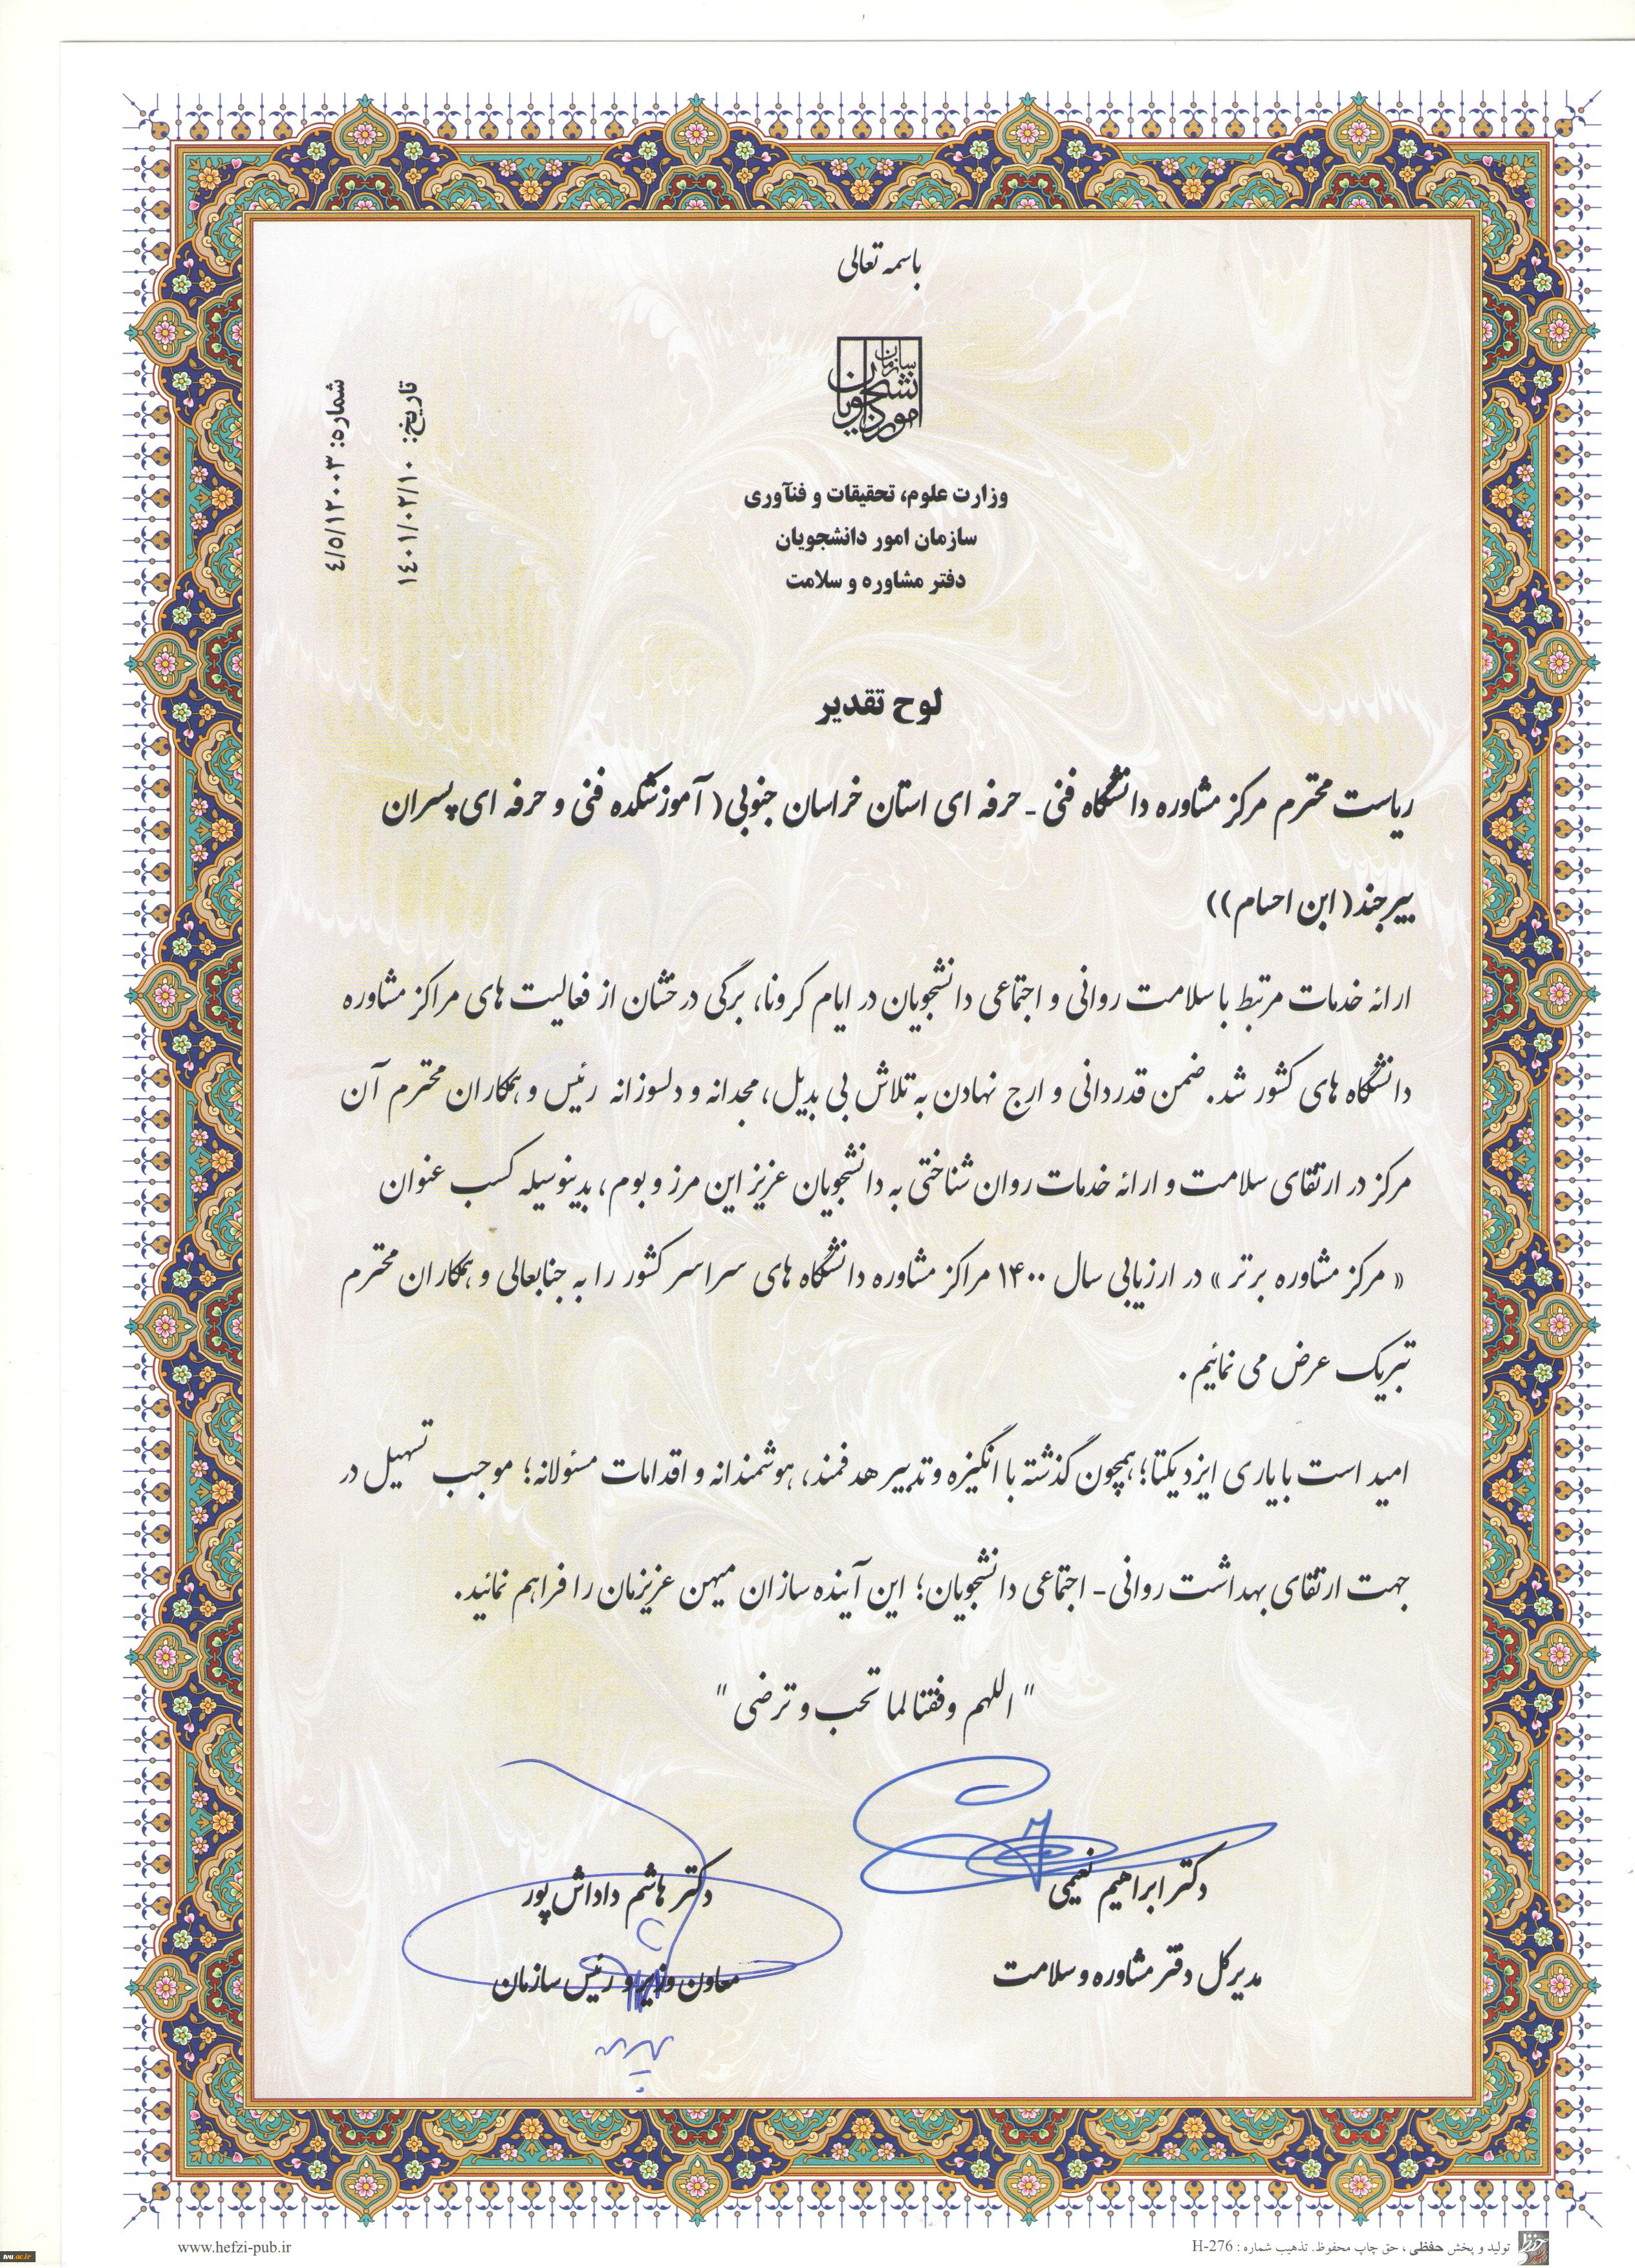 باسمه تعالی
سازمان
امور دانشجویان
شماره: ٤/٥/١٢٠٠٣
تاریخ: ١٤٠١/٠٢/١٠
وزارت علوم، تحقیقات و فنآوری
سازمان امور دانشجویان
دفتر مشاوره و سلامت
لوح تقدیر
ریاست محترم مرکز مشاوره دانشگاه فنی - حرفه ای استان خراسان جنوبی( آموزشکده فنی و حرفه ای پسران
بیرجند( ابن احسام))
ارائه خدمات مرتبط با سلامت روانی و اجتماعی دانشجویان در ایام کرونا، برگی درخشان از فعالیت های مراکز مشاوره
دانشگاه های کشور شد. ضمن قدردانی و ارج نهادن به تلاش بی بدیل، مجدانه و دلسوزانه رئیس و همکاران محترم آن
مرکز در ارتقای سلامت و ارائه خدمات روان شناختی به دانشجویان عزیز این مرز و بوم، بدینوسیله کسب عنوان
« مرکز مشاوره برتر » در ارزیابی سال ۱۴۰۰ مراکز مشاوره دانشگاه های سراسر کشور را به جنابعالی و همکاران محترم
تبریک عرض می نمائیم.
امید است با یاری ایزد یکتا؛ همچون گذشته با انگیزه و تدبیر هدفمند، هوشمندانه و اقدامات مسئولانه؛ موجب تسهیل در
جهت ارتقای بهداشت روانی - اجتماعی دانشجویان؛ این آینده سازان میهن عزیزمان را فراهم نمائید.
" اللهم وفقنا لما تحب و ترضی "
دکتر ابراهیم نعیمی
مدیرکل دفتر مشاوره و سلامت
دکتر هاشم داداش پور
معاون وزیر و رئیس سازمان
تولید و پخش حفظی ، حق چاپ محفوظ. تذهیب شماره : H-276
www.hefzi-pub.ir
tvu.ac.ir